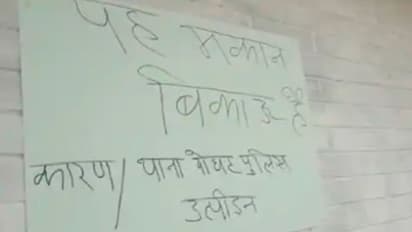 यह मकान
बिकाऊ है
कारण / थाना चोपट पुलिस
उत्पीडन